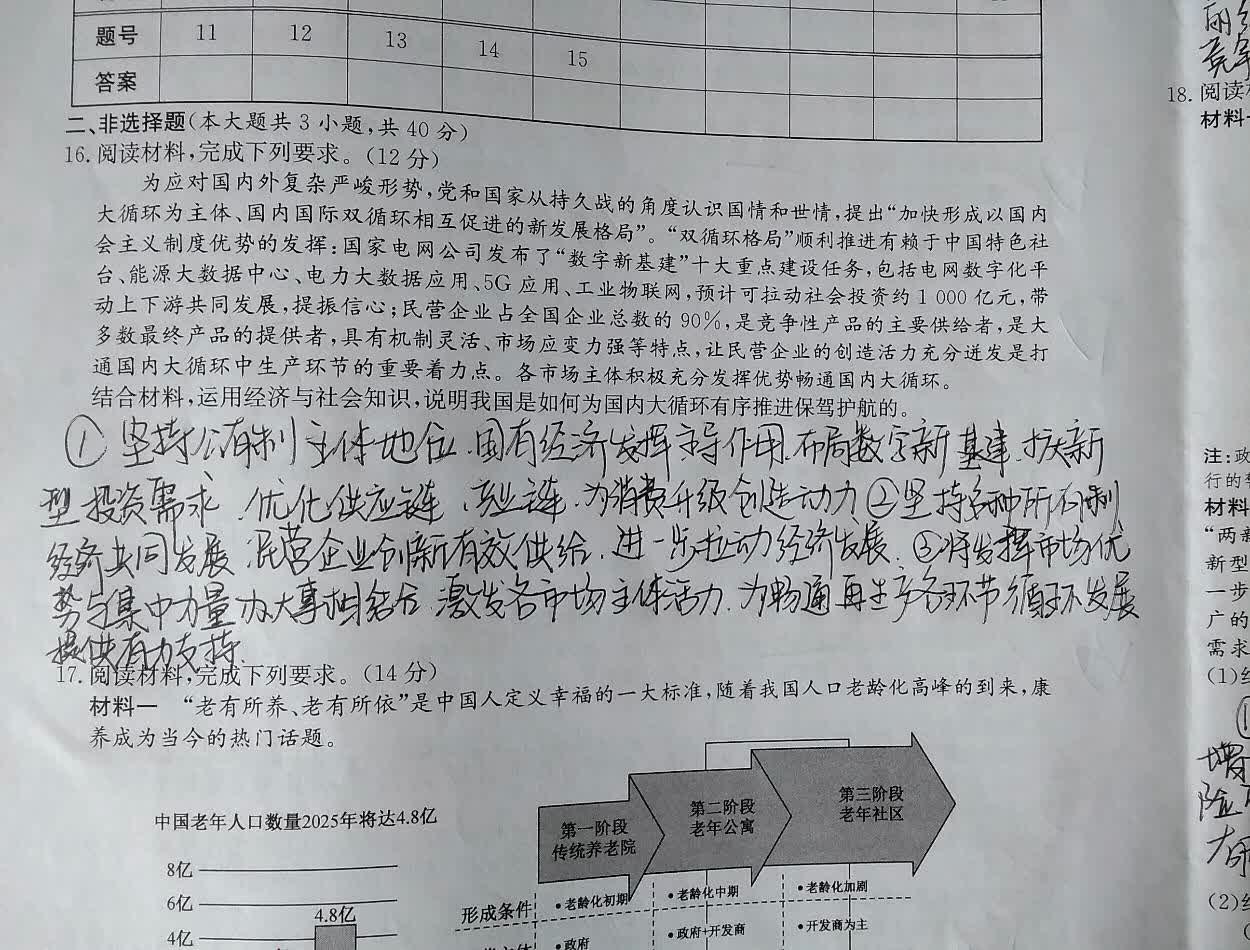 题号 11 12 13 14 15
答案
二、非选择题(本大题共 3 小题,共 40 分)
16. 阅读材料,完成下列要求。(12 分)
为应对国内外复杂严峻形势,党和国家从持久战的角度认识国情和世情,提出“加快形成以国内
大循环为主体、国内国际双循环相互促进的新发展格局”。“双循环格局”顺利推进有赖于中国特色社
会主义制度优势的发挥:国家电网公司发布了“数字新基建”十大重点建设任务,包括电网数字化平
台、能源大数据中心、电力大数据应用、5G 应用、工业物联网,预计可拉动社会投资约 1 000 亿元,带
动上下游共同发展,提振信心;民营企业占全国企业总数的 90%,是竞争性产品的主要供给者,是大
多数最终产品的提供者,具有机制灵活、市场应变力强等特点,让民营企业的创造活力充分迸发是打
通国内大循环中生产环节的重要着力点。各市场主体积极充分发挥优势畅通国内大循环。
结合材料,运用经济与社会知识,说明我国是如何为国内大循环有序推进保驾护航的。
① 坚持公有制主体地位.国有经济发挥主导作用.布局数字新基建.扩大新
型投资需求.优化供应链、产业链.为消费升级创造动力②坚持多种所有制
经济共同发展.民营企业创新有效供给.进一步拉动经济发展.③将发挥市场优
势与集中力量办大事相结合.激发各市场主体活力.为畅通再生产各环节循环发展
提供有力支持.
17. 阅读材料,完成下列要求。(14 分)
材料一 “老有所养、老有所依”是中国人定义幸福的一大标准,随着我国人口老龄化高峰的到来,康
养成为当今的热门话题。
中国老年人口数量2025年将达4.8亿
8亿
6亿
4.8亿
4亿
第一阶段
传统养老院
第二阶段
老年公寓
第三阶段
老年社区
形成条件 •老龄化初期 •老龄化中期 •老龄化加剧
•政府 •政府+开发商 •开发商为主
18. 阅读
材料
注:政
行的
材料
“两
新型
一步
广的
需求
(1)
增
险
(2)